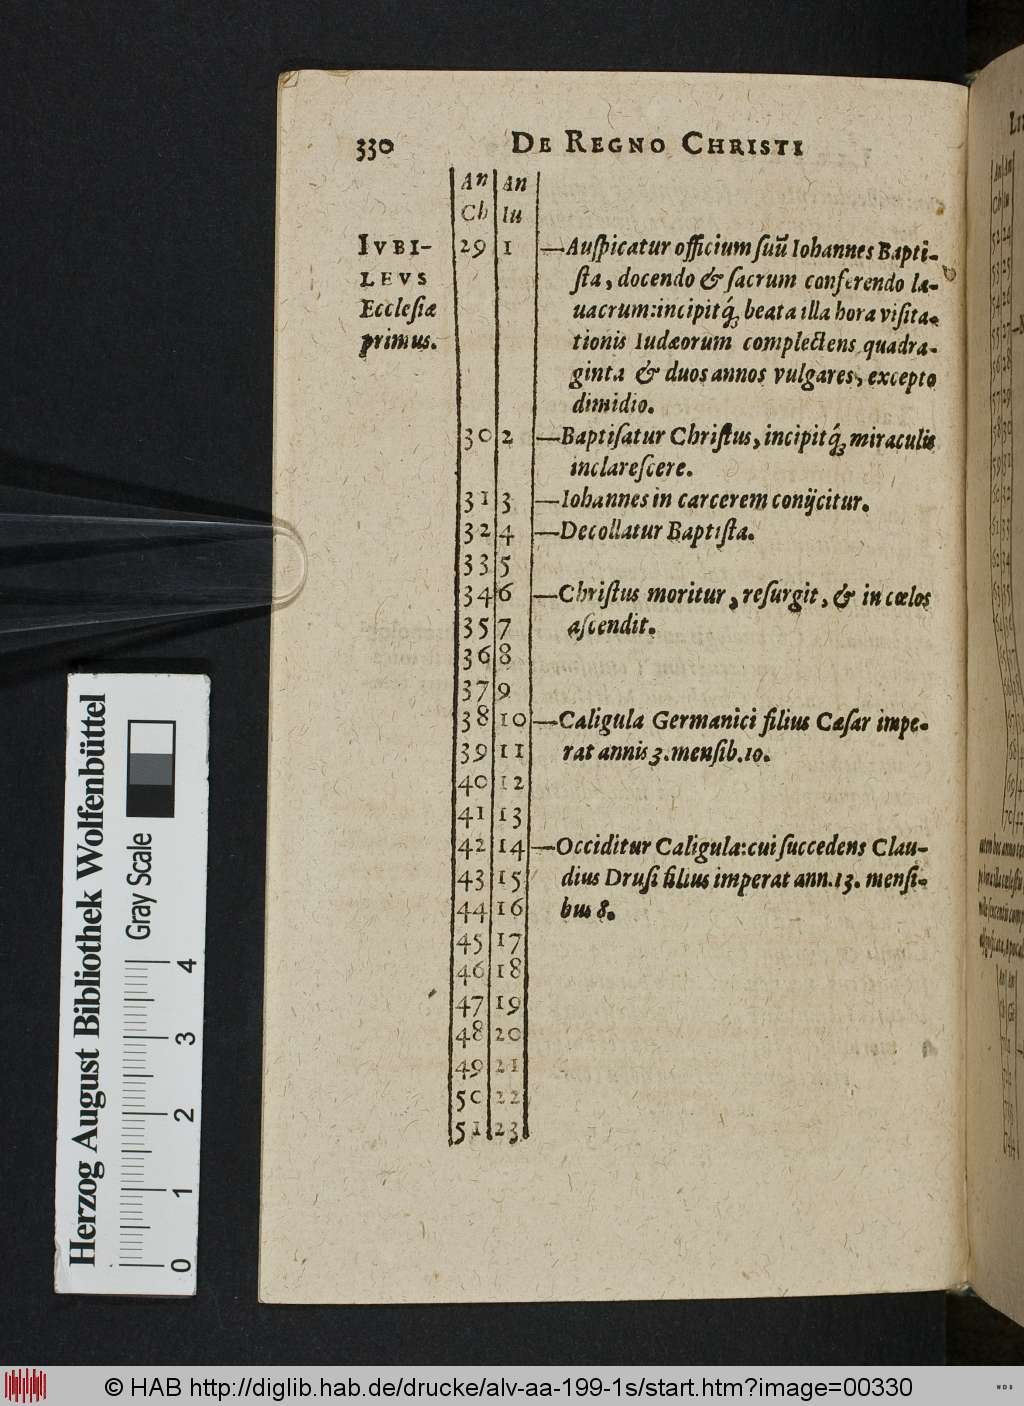 330 DE REGNO CHRISTI
An An
Ch Iu
IVBI- 29 1 —Auſpicatur officium ſuũ Iohannes Bapti-
LEVS ſta, docendo & ſacrum conferendo la-
Eccleſiæ uacrum: incipitq́; beata illa hora viſita-
primus. tionis Iudæorum complectens quadra-
ginta & duos annos vulgares, excepto
dimidio.
30 2 —Baptiſatur Chriſtus, incipitq́; miraculis
inclareſcere.
31 3 —Iohannes in carcerem conijcitur.
32 4 —Decollatur Baptiſta.
33 5
34 6 —Chriſtus moritur, reſurgit, & in cœlos
35 7 aſcendit.
36 8
37 9
38 10 —Caligula Germanici filius Cæſar impe-
39 11 rat annis 3. menſib. 10.
40 12
41 13
42 14 —Occiditur Caligula: cui ſuccedens Clau-
43 15 dius Druſi filius imperat ann. 13. menſi-
44 16 bus 8.
45 17
46 18
47 19
48 20
49 21
50 22
51 23
Herzog August Bibliothek Wolfenbüttel
Gray Scale
0 1 2 3 4
© HAB http://diglib.hab.de/drucke/alv-aa-199-1s/start.htm?image=00330